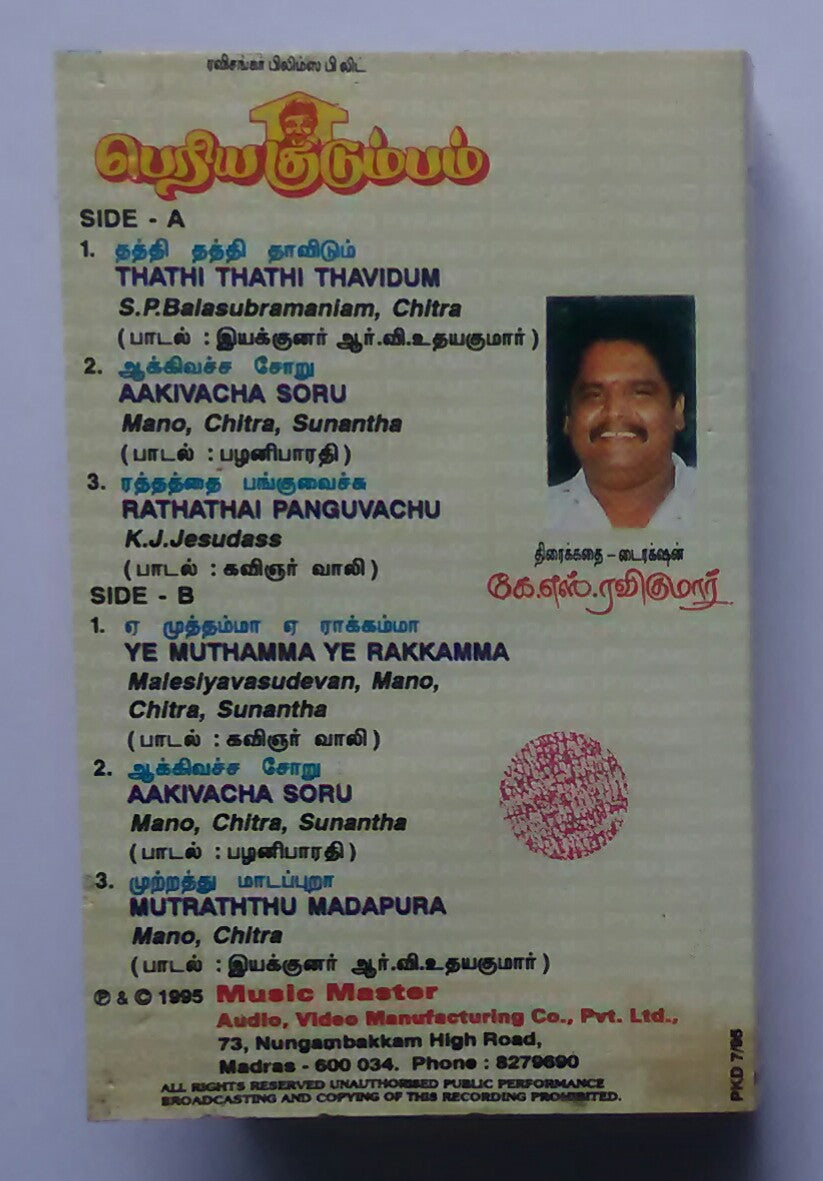 ரவிசங்கர் பிலிம்ஸ் பி லிட்
பெரிய குடும்பம்
SIDE - A
1. தத்தி தத்தி தாவிடும்
THATHI THATHI THAVIDUM
S.P.Balasubramaniam, Chitra
(பாடல் : இயக்குனர் ஆர்.வி.உதயகுமார்)
2. ஆக்கிவச்ச சோறு
AAKIVACHA SORU
Mano, Chitra, Sunantha
(பாடல் : பழனிபாரதி)
3. ரத்தத்தை பங்குவைச்சு
RATHATHAI PANGUVACHU
K.J.Jesudass
(பாடல் : கவிஞர் வாலி)
திரைக்கதை - டைரக்ஷன்
கே.எஸ்.ரவிகுமார்
SIDE - B
1. ஏ முத்தம்மா ஏ ராக்கம்மா
YE MUTHAMMA YE RAKKAMMA
Malesiyavasudevan, Mano,
Chitra, Sunantha
(பாடல் : கவிஞர் வாலி)
2. ஆக்கிவச்ச சோறு
AAKIVACHA SORU
Mano, Chitra, Sunantha
(பாடல் : பழனிபாரதி)
3. முற்றத்து மாடப்புறா
MUTRATHTHU MADAPURA
Mano, Chitra
(பாடல் : இயக்குனர் ஆர்.வி.உதயகுமார்)
℗ & © 1995 Music Master
Audio, Video Manufacturing Co., Pvt. Ltd.,
73, Nungambakkam High Road,
Madras - 600 034. Phone : 8279690
ALL RIGHTS RESERVED UNAUTHORISED PUBLIC PERFORMANCE
BROADCASTING AND COPYING OF THIS RECORDING PROHIBITED.
PKD 7/95